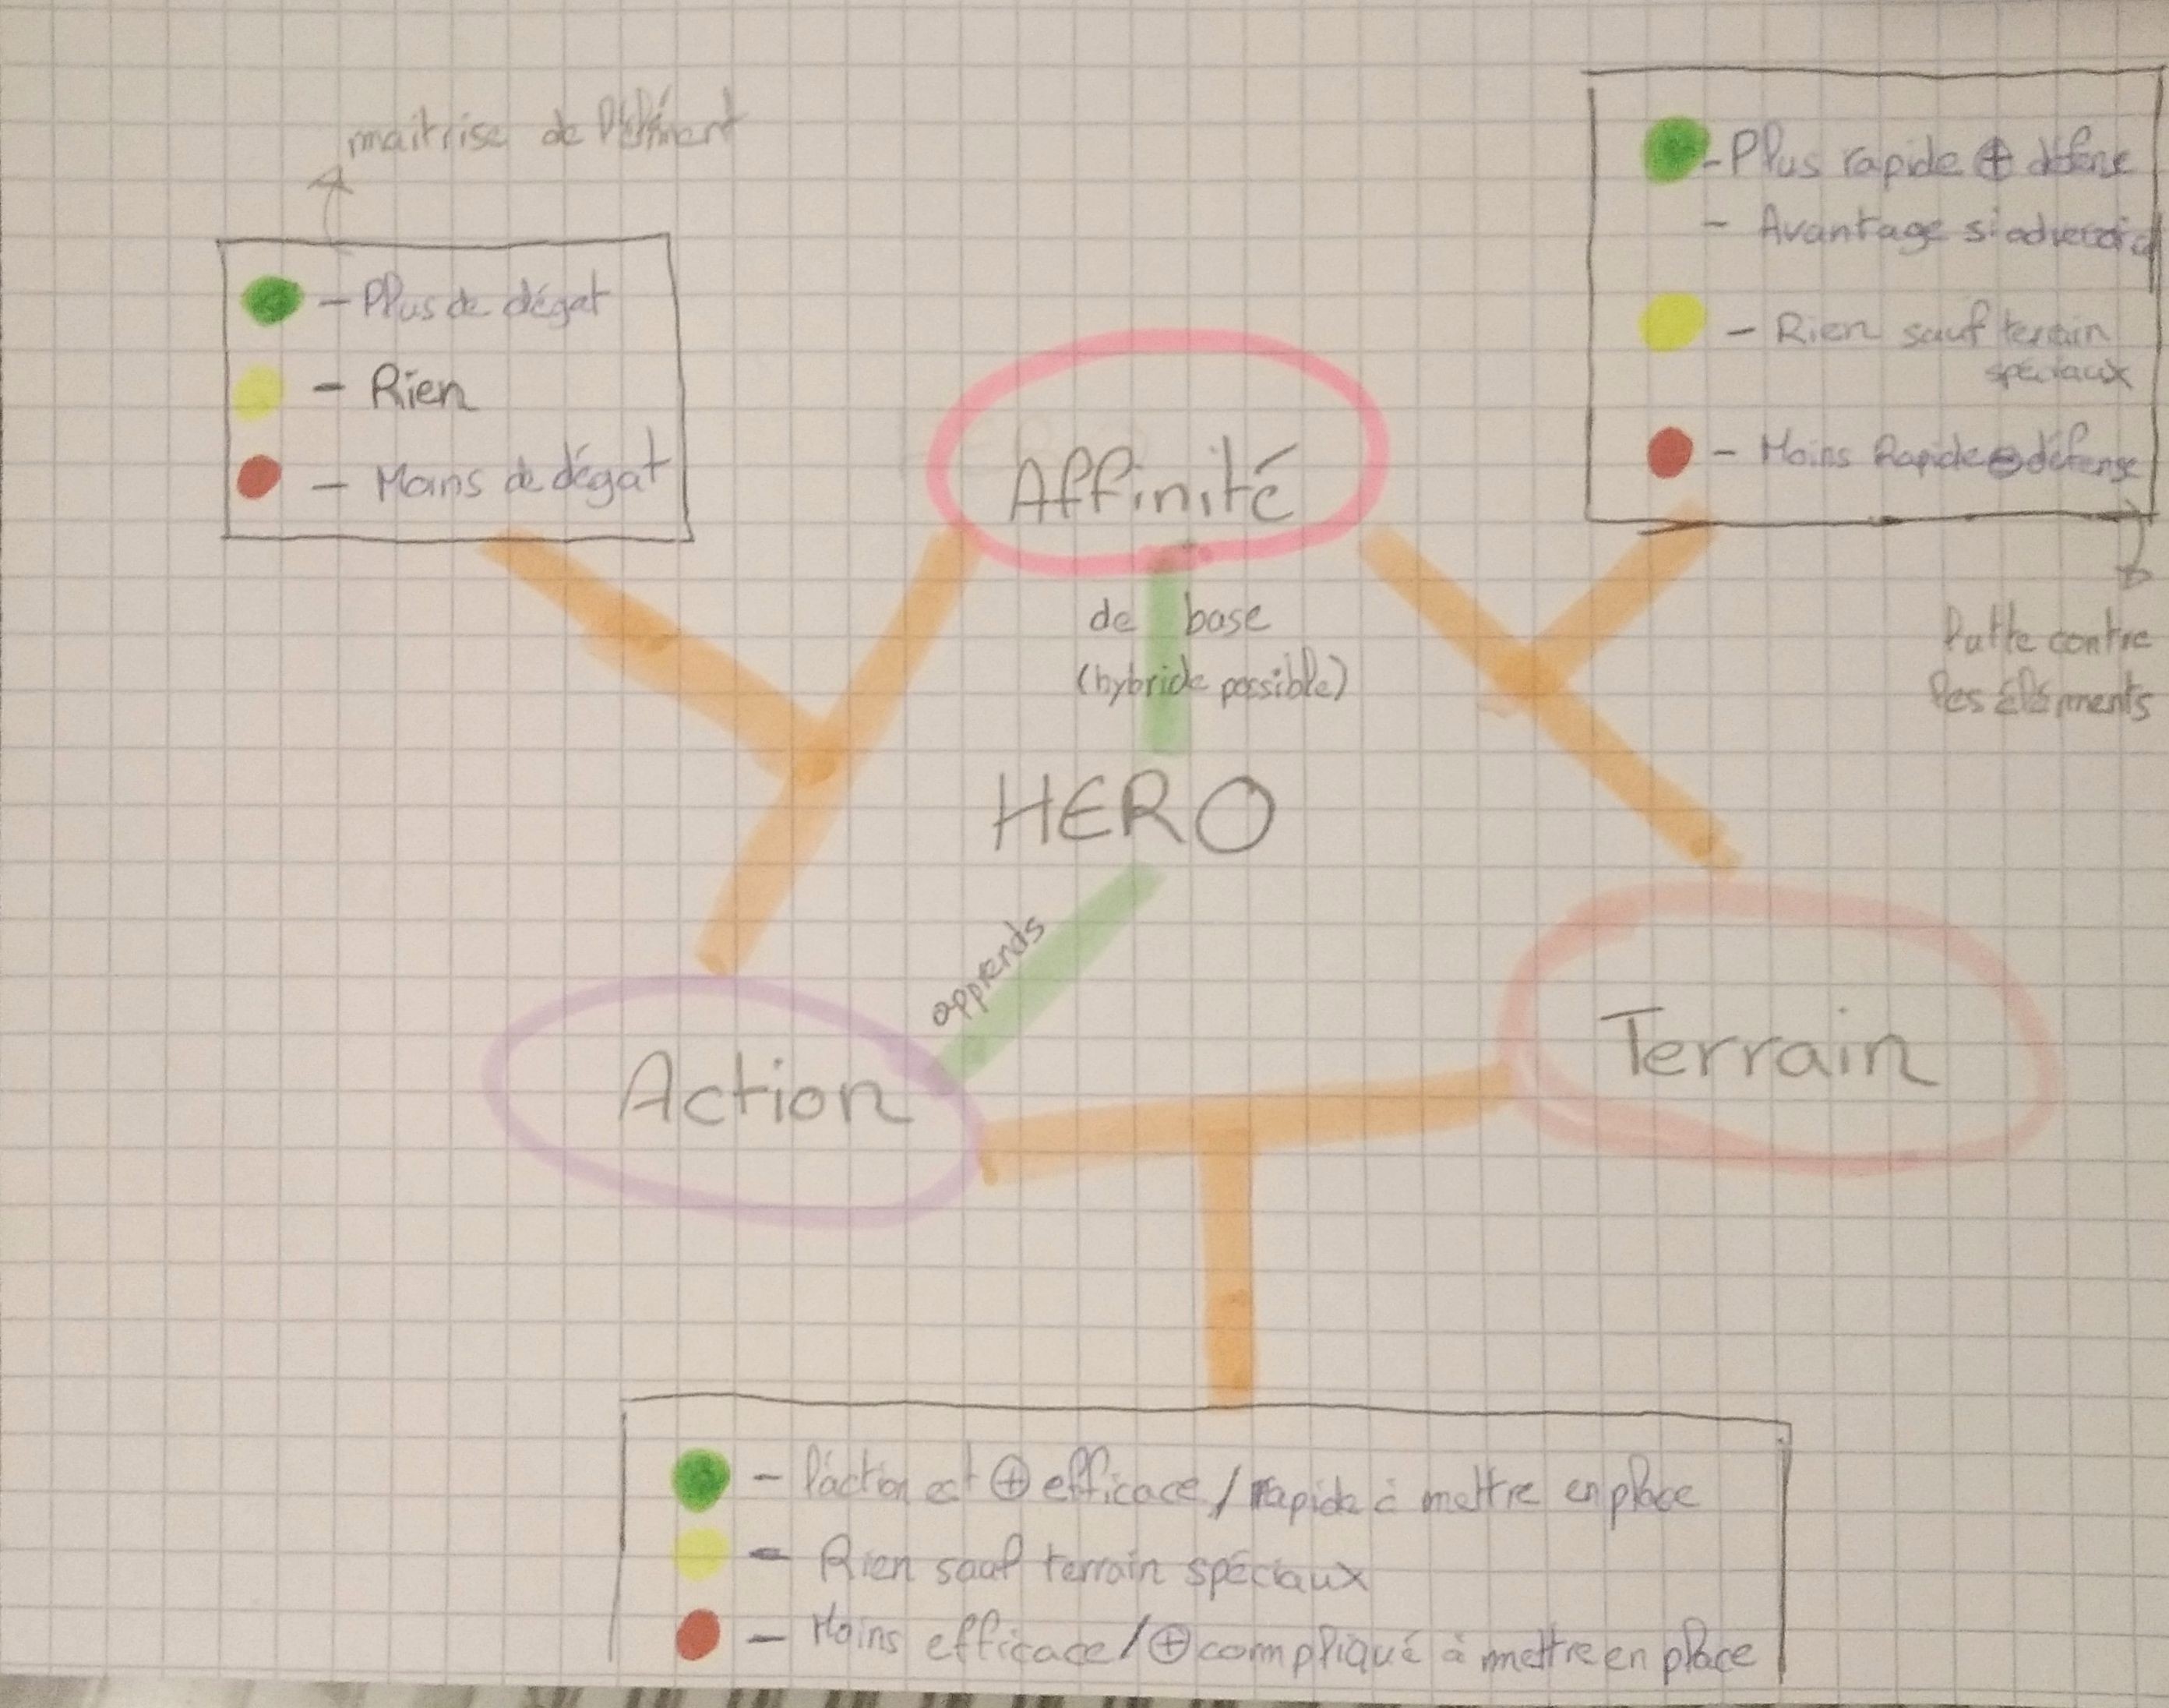 maitrise de l'élément
- Plus de dégat
- Rien
- Moins de dégat
- Plus rapide ⊕ défense
- Avantage si
- Rien sauf terrain
spéciaux
- Moins Rapide ⊖ défense
lutte contre
les éléments
Affinité
de base
(hybride possible)
HERO
apprends
Action
Terrain
- l'action est ⊕ efficace / rapide à mettre en place
- Rien sauf terrain spéciaux
- Moins efficace / ⊕ compliqué à mettre en place